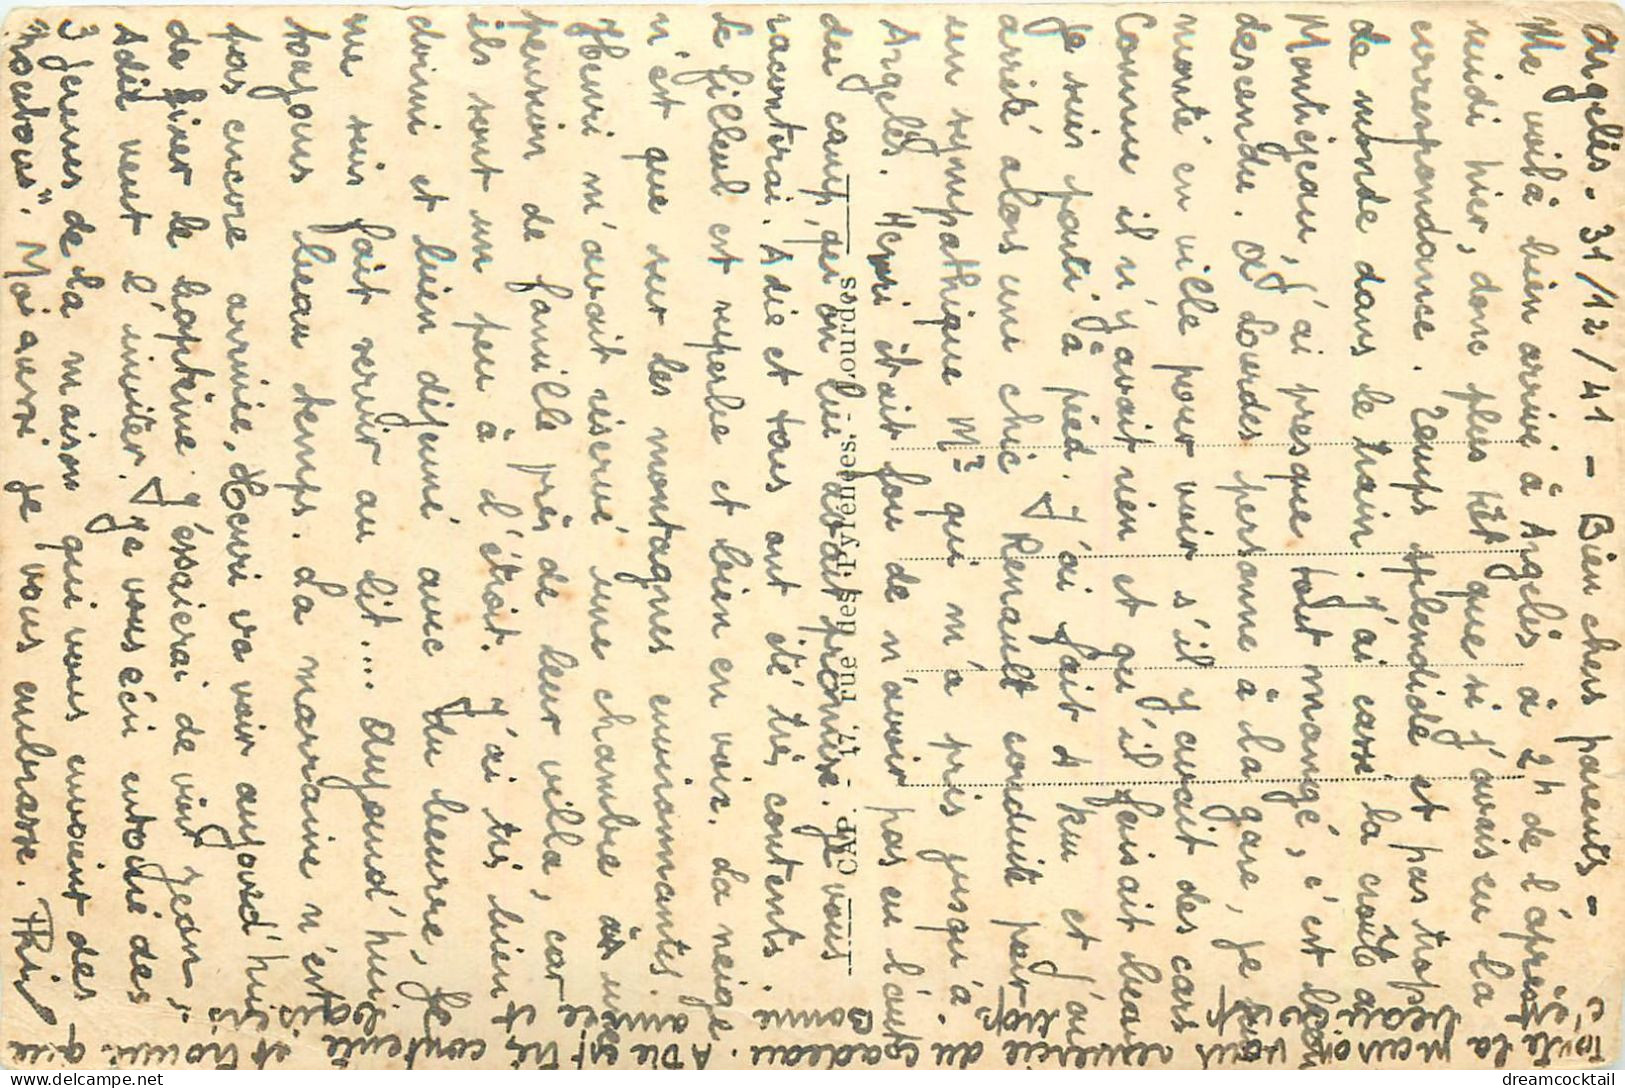 Argelès - 31/12/41 - Bien chers parents -
Me voilà bien arrivé à Argelès à 2h de l'après
midi hier, donc plus tôt que si j'avais eu la
correspondance. Temps splendide et pas trop
de monde dans le train. J'ai cassé la croûte à
Montréjeau, j'ai presque tout mangé, c'est bon
descendu. A Lourdes personne à la gare, je suis
monté en ville pour voir s'il y avait des cars
Comme il n'y avait rien et qu'il faisait beau
je suis parti à pied. J'ai fait 4 km et j'ai
arrêté alors une chic Renault conduite par
un sympathique Mr qui m'a pris jusqu'à
Argelès. Henri était fou de n'avoir pas eu l'auto
du camp, qu'on lui avait promise. Je vous
raconterai. Adie et tous ont été très contents.
Le filleul est superbe et bien en voix. La neige
n'est que sur les montagnes environnantes.
Henri m'avait réservé une chambre à une
pension de famille près de leur villa, car
ils sont un peu à l'étroit. J'ai très bien
dormi et bien déjeuné avec du beurre, je
me suis fait servir au lit.... Aujourd'hui
toujours beau temps. La marraine n'est
pas encore arrivée, Henri va voir aujourd'hui
de fixer le baptême. J'essaierai de voir Jean,
Adie veut l'inviter. Je vous écris entouré des
3 femmes de la maison qui vous envoient des
"poutous". Moi aussi je vous embrasse. Phi
Toute la maison vous remercie du cadeau. Adie est très contente et trouve que
c'est beaucoup trop. Bonne année et baisers.
CAP. - 17, rue des Pyrénées. - Lourdes
dreamcocktail